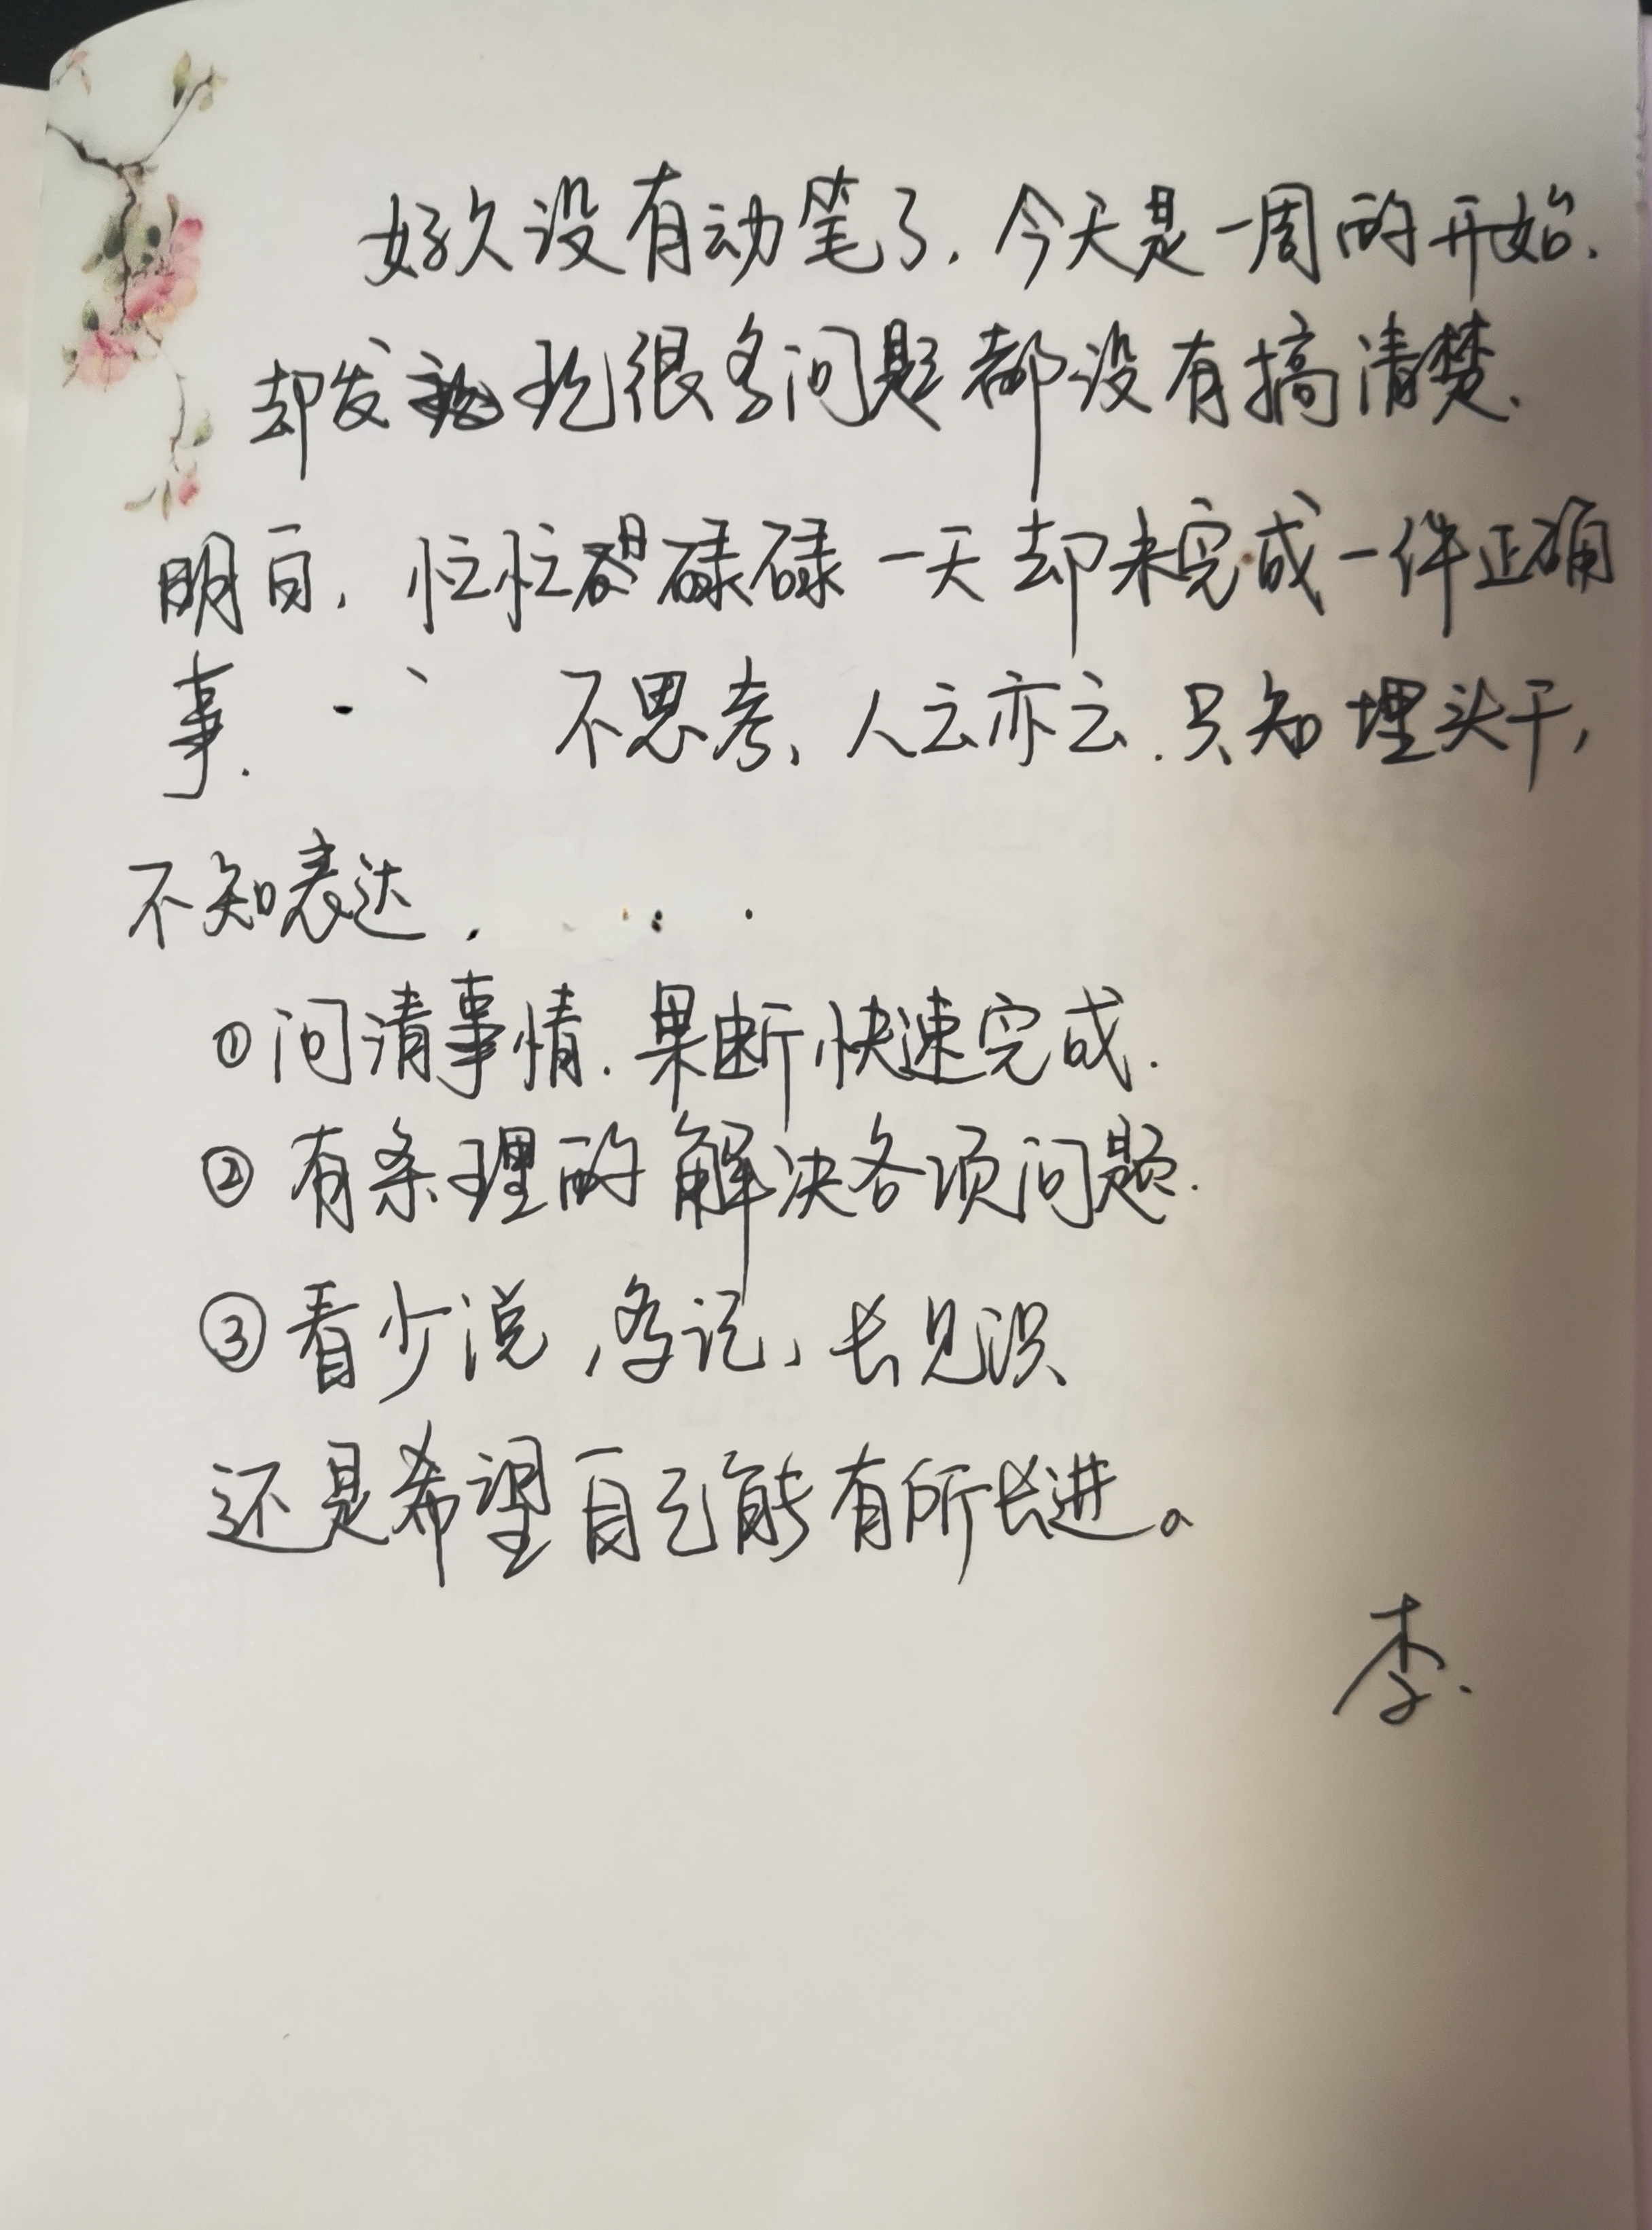 好久没有动笔了.今天是一周的开始.
却发现很多问题都没有搞清楚、
明白,忙忙碌碌一天却未完成一件正确
事.不思考、人云亦云.只知埋头干,
不知表达.
①问清事情.果断快速完成.
②有条理的解决各项问题.
③看少说,多记,长见识
还是希望自己能有所长进。
李.